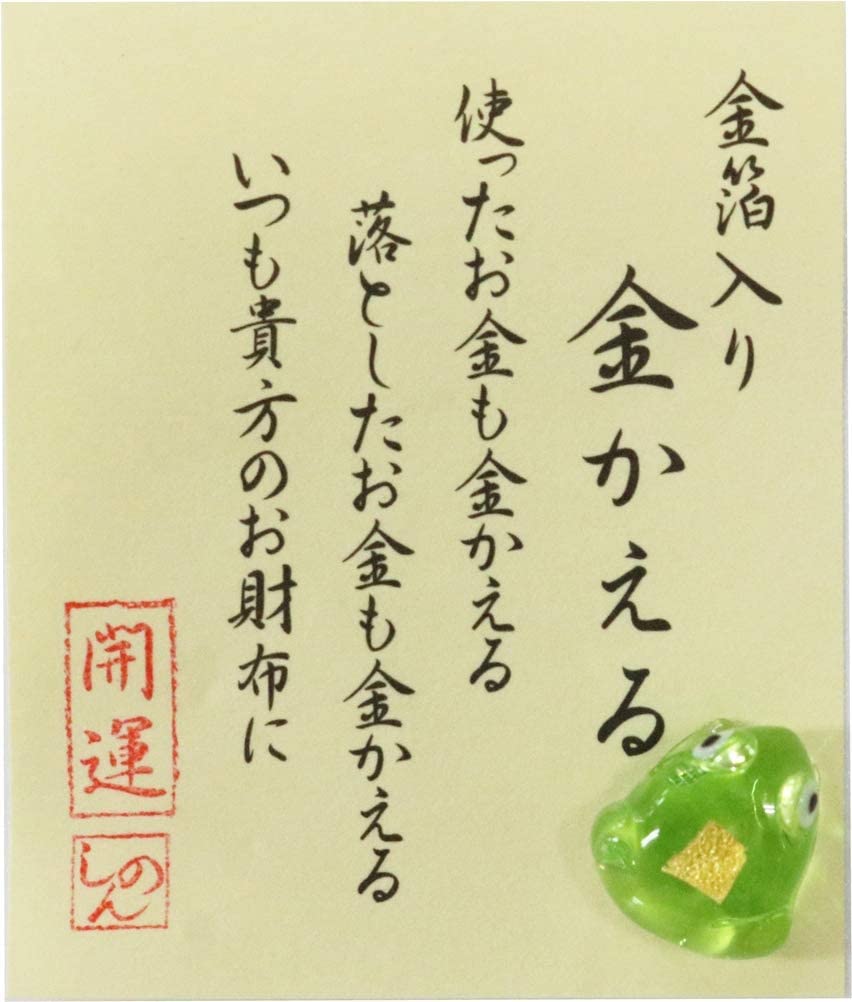 金箔入り
金かえる
使ったお金も金かえる
落としたお金も金かえる
いつも貴方のお財布に
開運
しんの